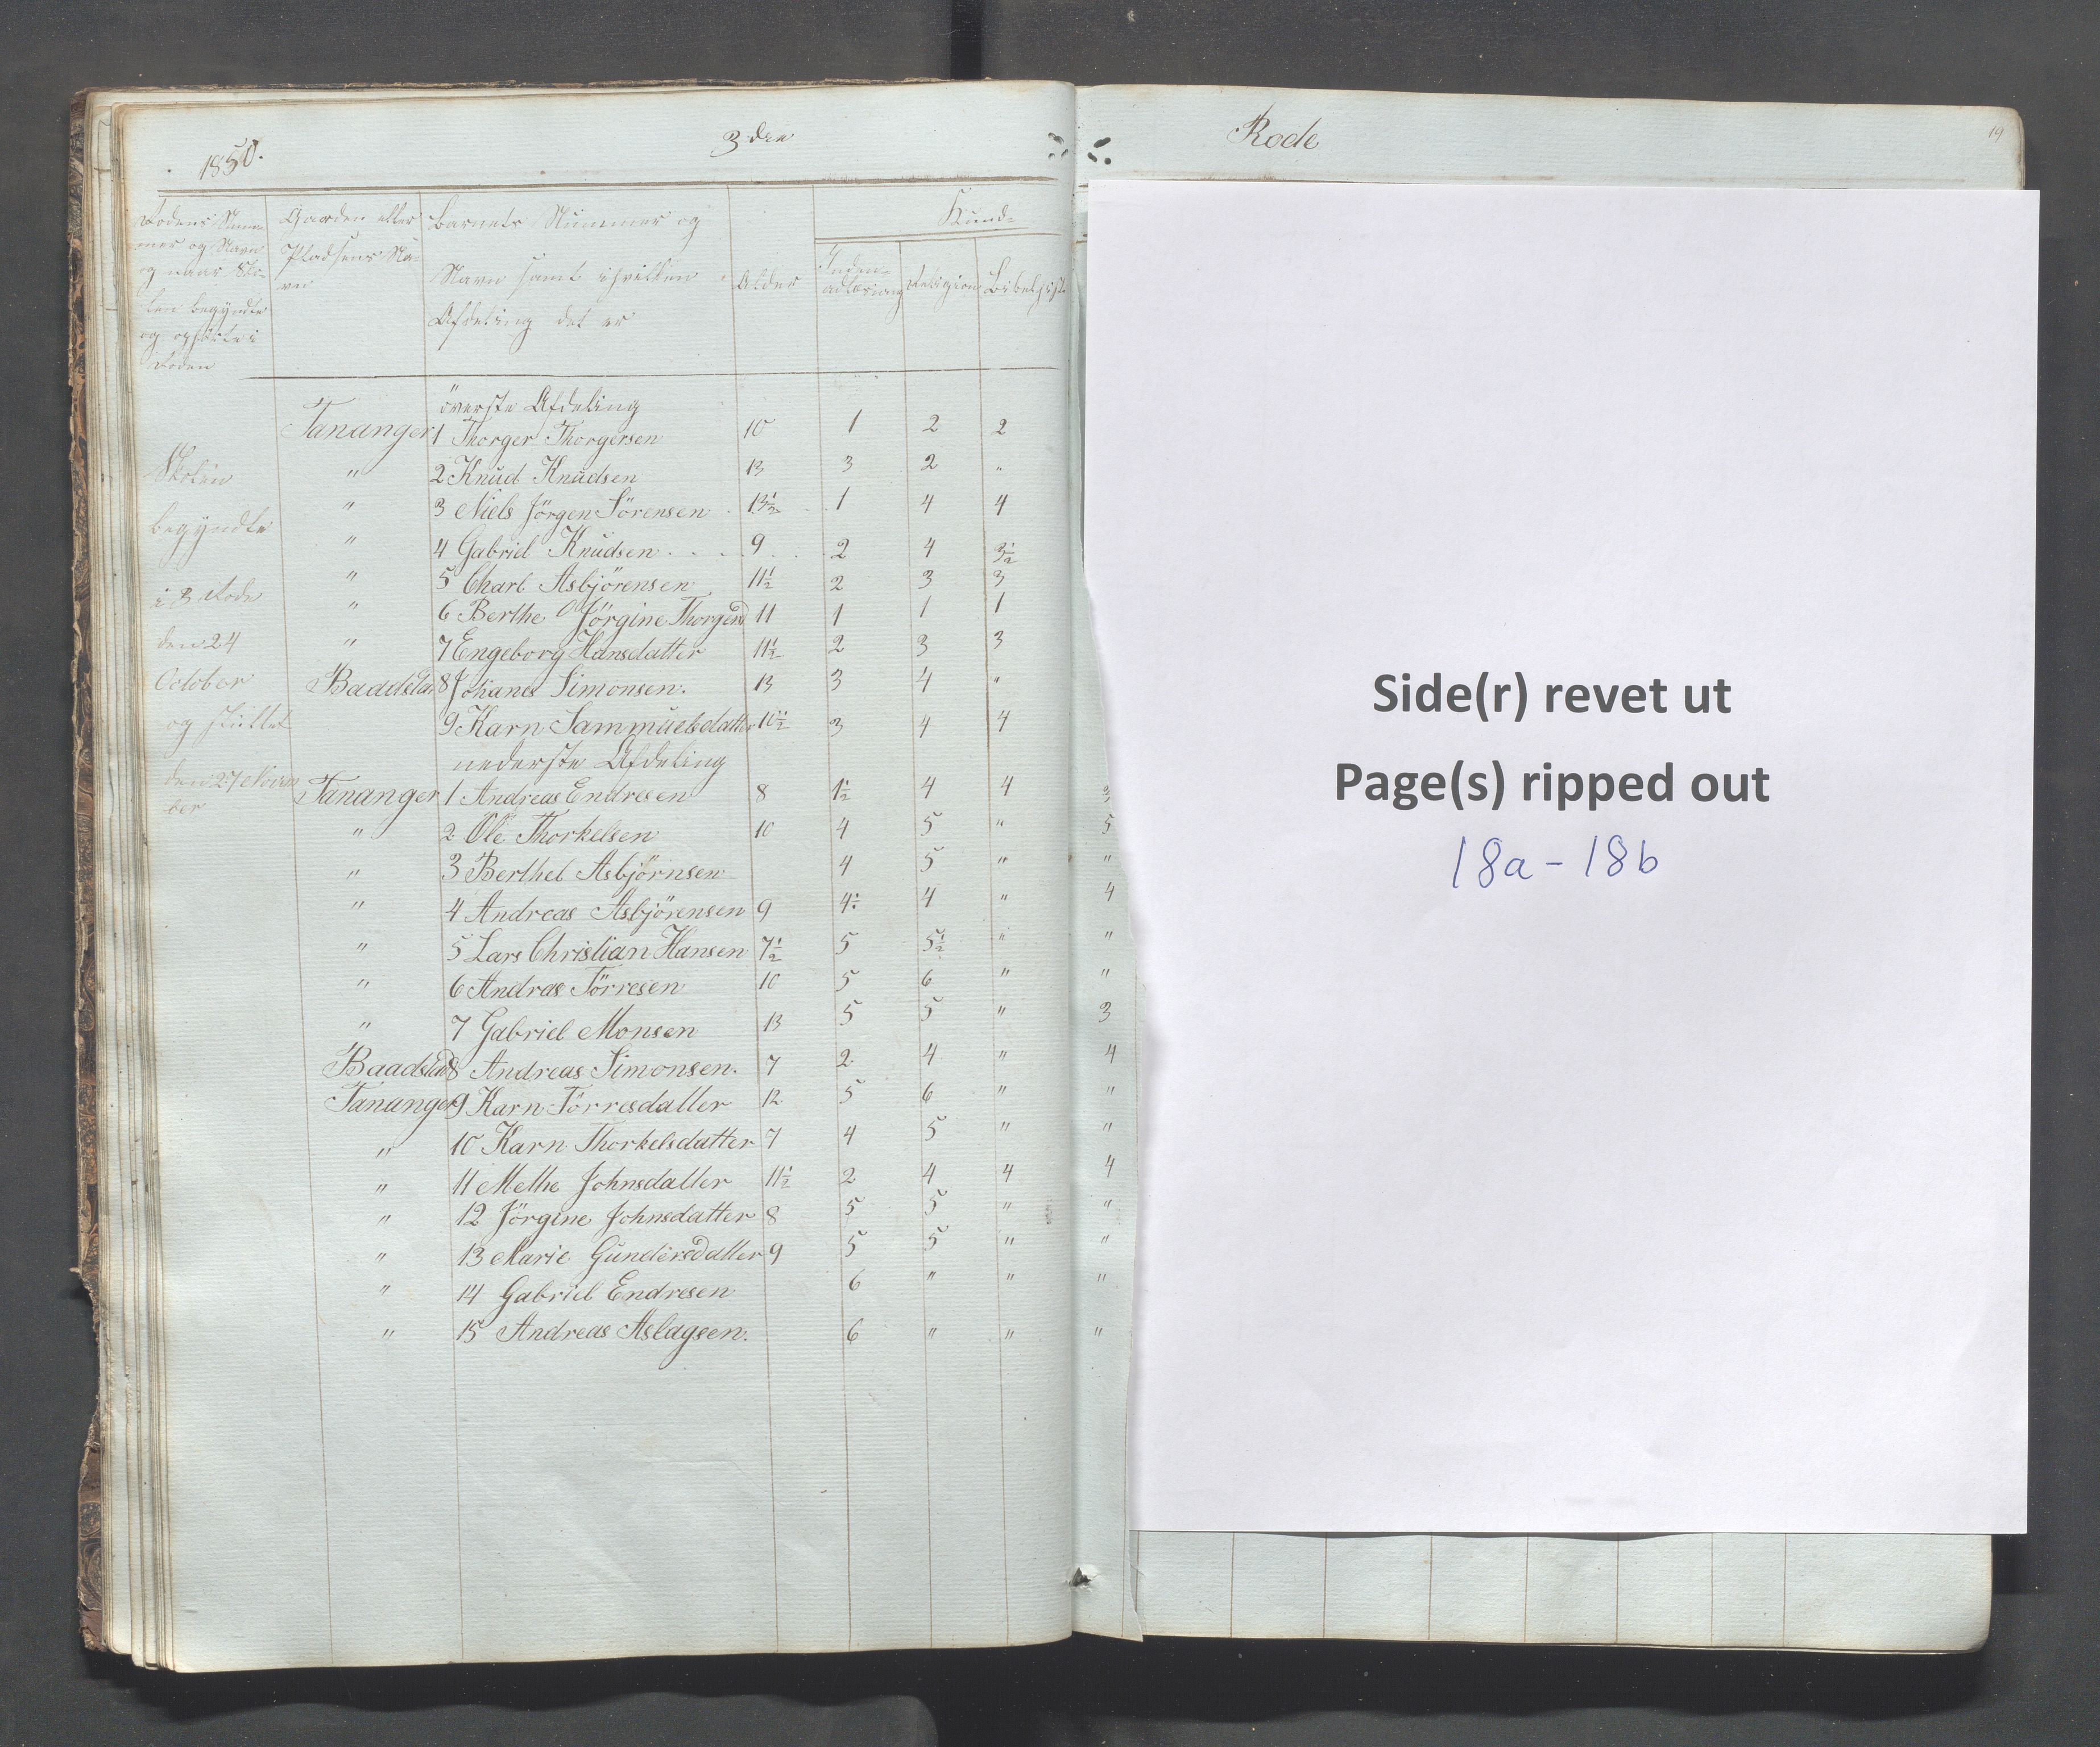 1850. 3den Rode 19
Rodens Num-
mer og Navn
og naar Sko-
len begyndte
og ophørte i
Roden
Gaarden eller
Pladsens Na-
vn
Barnets Nummer og
Navn samt i hvilken
Afdeling det er
Alder
Kund-
Inden-
adlæsning Religion Bibelhist.
överste Afdeling
Tananger 1 Thorger Thorgersen 10 1 2 2
" 2 Knud Knudsen 13 3 2 "
" 3 Niels Jörgen Sörensen 13½ 1 4 4
" 4 Gabriel Knudsen 9 2 4 3½
" 5 Charl Asbjörensen 11½ 2 3 3
" 6 Berthe Jörgine Thorgsd 11 1 1 1
" 7 Engeborg Hansdatter 11½ 2 3 3
Baadstad 8 Johanes Simonsen. 13 3 4 "
9 Karn Sammuelsdatter 10½ 3 4 4
Skolen
begyndte
i 3 Rode
den 24
October
og sluttet
den 27 Novem
ber
nederste Afdeling
Tananger 1 Andreas Endresen 8 1½ 4 4 3
" 2 Ole Thorkelsen 10 4 5 " 5
" 3 Berthel Asbjörnsen 4 5 " "
" 4 Andreas Asbjörensen 9 4 4 " 4
" 5 Lars Christian Hansen 7½ 5 5½ " "
" 6 Andras Törresen 10 5 6 " "
" 7 Gabriel Monsen 13 5 5 " 3
Baadstad 8 Andreas Simonsen. 7 2 4 " 4
Tananger 9 Karn Törresdatter 12 5 6 " "
" 10 Karn Thorkelsdatter 7 4 5 " "
" 11 Methe Johnsdatter 11½ 2 4 4 4
" 12 Jörgine Johnsdatter 8 5 5 " "
" 13 Marie Gundersdatter 9 5 5 " "
" 14 Gabriel Endresen 6 " " "
" 15 Andreas Aslagsen. 6 " " "
Side(r) revet ut
Page(s) ripped out
18a - 18b